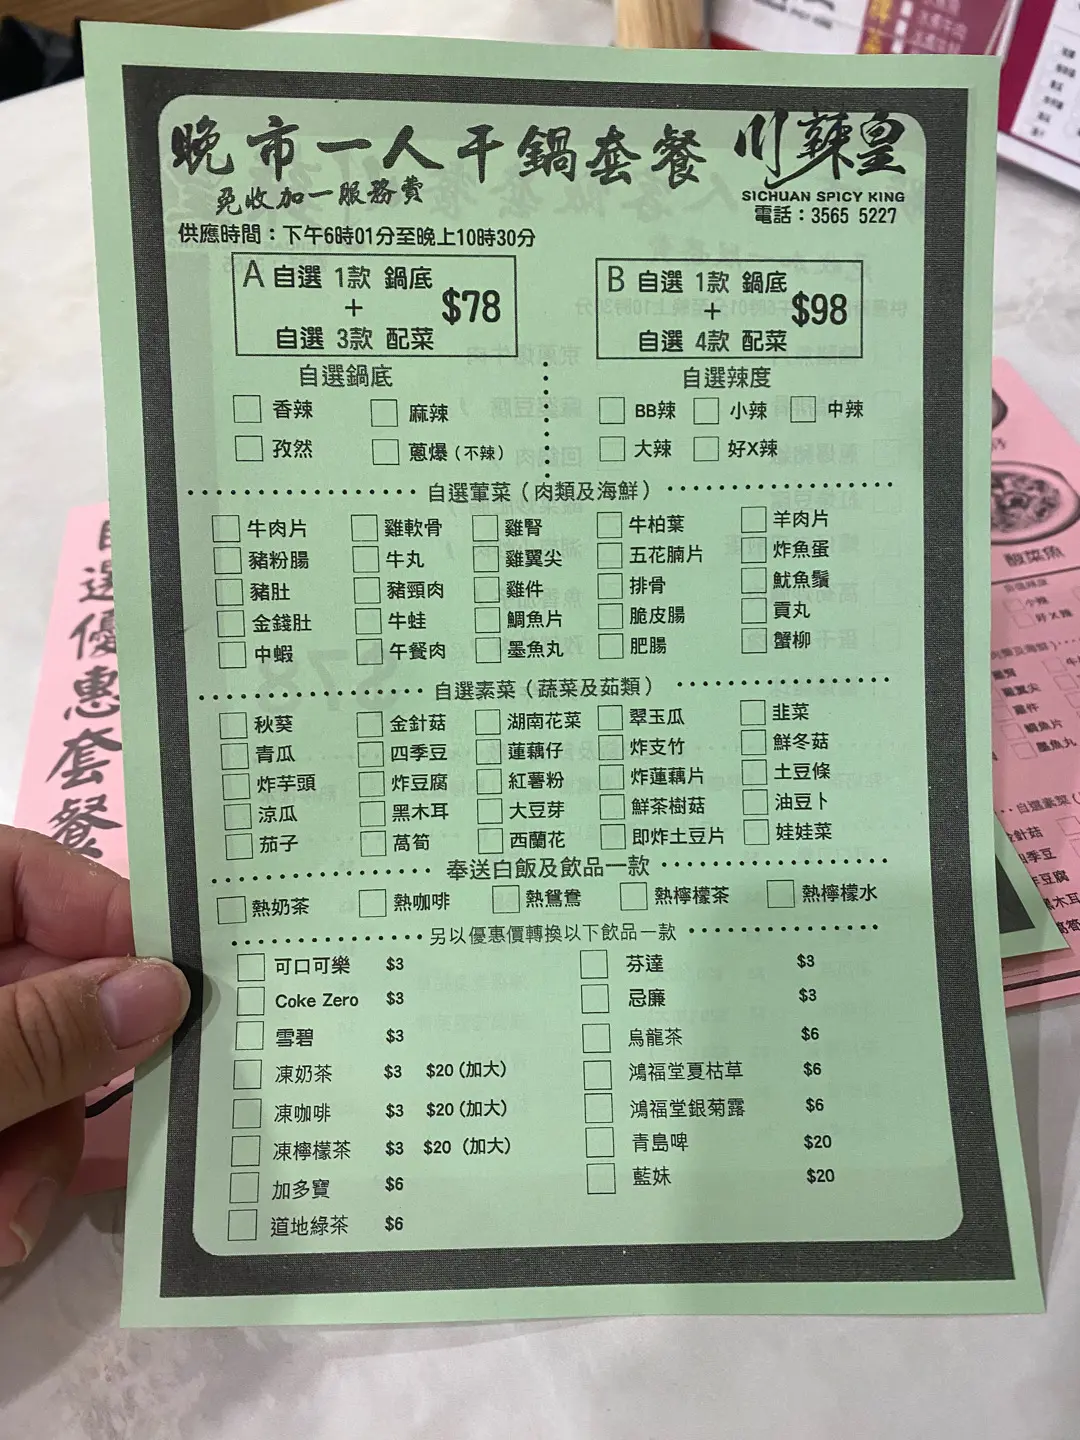 晚市一人干鍋套餐 川辣皇
免收加一服務費
SICHUAN SPICY KING
電話：3565 5227
供應時間：下午6時01分至晚上10時30分
A 自選 1款 鍋底
+
自選 3款 配菜
$78
B 自選 1款 鍋底
+
自選 4款 配菜
$98
自選鍋底
香辣 麻辣
孜然 蔥爆（不辣）
自選辣度
BB辣 小辣 中辣
大辣 好X辣
自選葷菜（肉類及海鮮）
牛肉片 雞軟骨 雞腎 牛柏葉 羊肉片
豬粉腸 牛丸 雞翼尖 五花腩片 炸魚蛋
豬肚 豬頸肉 雞件 排骨 魷魚鬚
金錢肚 牛蛙 鯛魚片 脆皮腸 貢丸
中蝦 午餐肉 墨魚丸 肥腸 蟹柳
自選素菜（蔬菜及茹類）
秋葵 金針菇 湖南花菜 翠玉瓜 韭菜
青瓜 四季豆 蓮藕仔 炸支竹 鮮冬菇
炸芋頭 炸豆腐 紅薯粉 炸蓮藕片 土豆條
涼瓜 黑木耳 大豆芽 鮮茶樹菇 油豆卜
茄子 萵筍 西蘭花 即炸土豆片 娃娃菜
奉送白飯及飲品一款
熱奶茶 熱咖啡 熱鴛鴦 熱檸檬茶 熱檸檬水
另以優惠價轉換以下飲品一款
可口可樂 $3 芬達 $3
Coke Zero $3 忌廉 $3
雪碧 $3 烏龍茶 $6
凍奶茶 $3 $20（加大） 鴻福堂夏枯草 $6
凍咖啡 $3 $20（加大） 鴻福堂銀菊露 $6
凍檸檬茶 $3 $20（加大） 青島啤 $20
加多寶 $6 藍妹 $20
道地綠茶 $6
自選優惠套餐
酸菜魚
小辣
好X辣
雞腎
雞翼尖
雞件
鯛魚片
墨魚丸
自選素菜
金針菇
四季豆
炸豆腐
黑木耳
萵筍